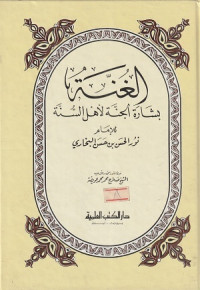 الغنة
بشارة الجنة لأهل السنة
للإمام
نور الحسن بن حسن البخاري
دار الكتب العلمية